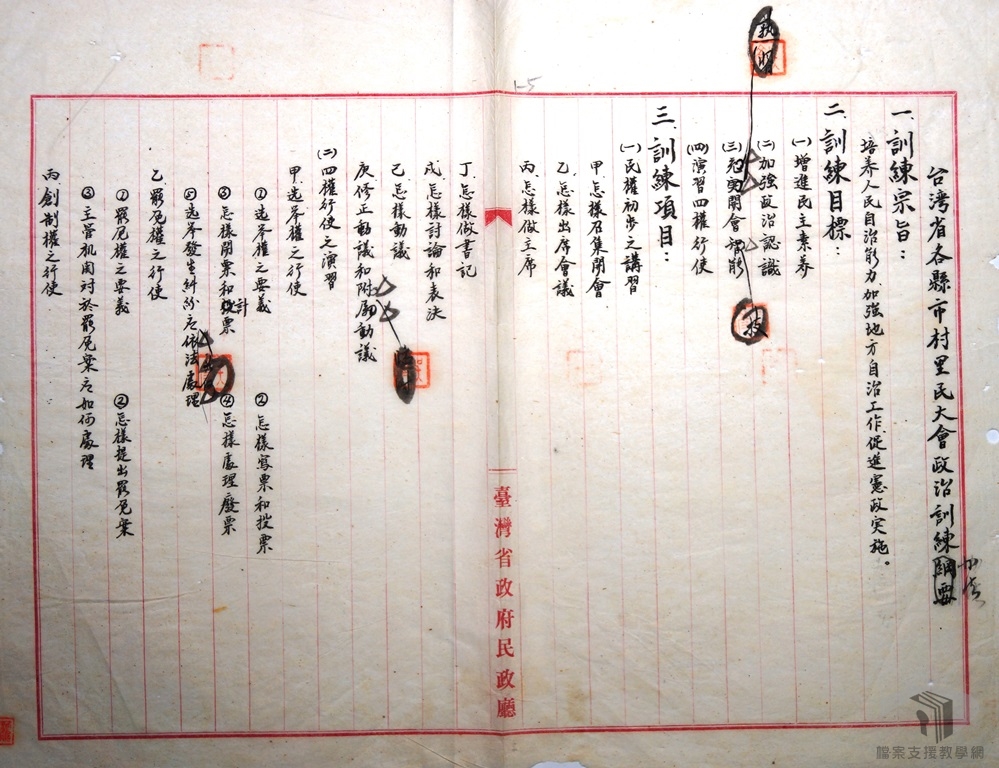 台湾省各縣市村里民大會政治訓練綱要
一、訓練宗旨：
培养人民自治能力、加強地方自治工作、促進憲政实施。
二、訓練目標：
㈠增進民主素养
㈡加強政治認識
㈢充实開會技能
㈣演習四權行使
三、訓練項目：
㈠民權初步之講習
甲、怎樣召集開會
乙、怎樣出席會議
丙、怎樣做主席
丁、怎樣做書記
戊、怎樣討論和表決
己、怎樣動議
庚、修正動議和附屬動議
㈡四權行使之演習
甲、选举權之行使
①选举權之要義 ②怎樣寫票和投票
③怎樣開票和計票 ④怎樣處理廢票
⑤选举發生糾紛应依法處理
乙、罷免權之行使
①罷免權之要義 ②怎樣提出罷免案
③主管机関対於罷免案应如何處理
丙、創制權之行使
臺灣省政府民政廳
1-5
檔案支援教學網